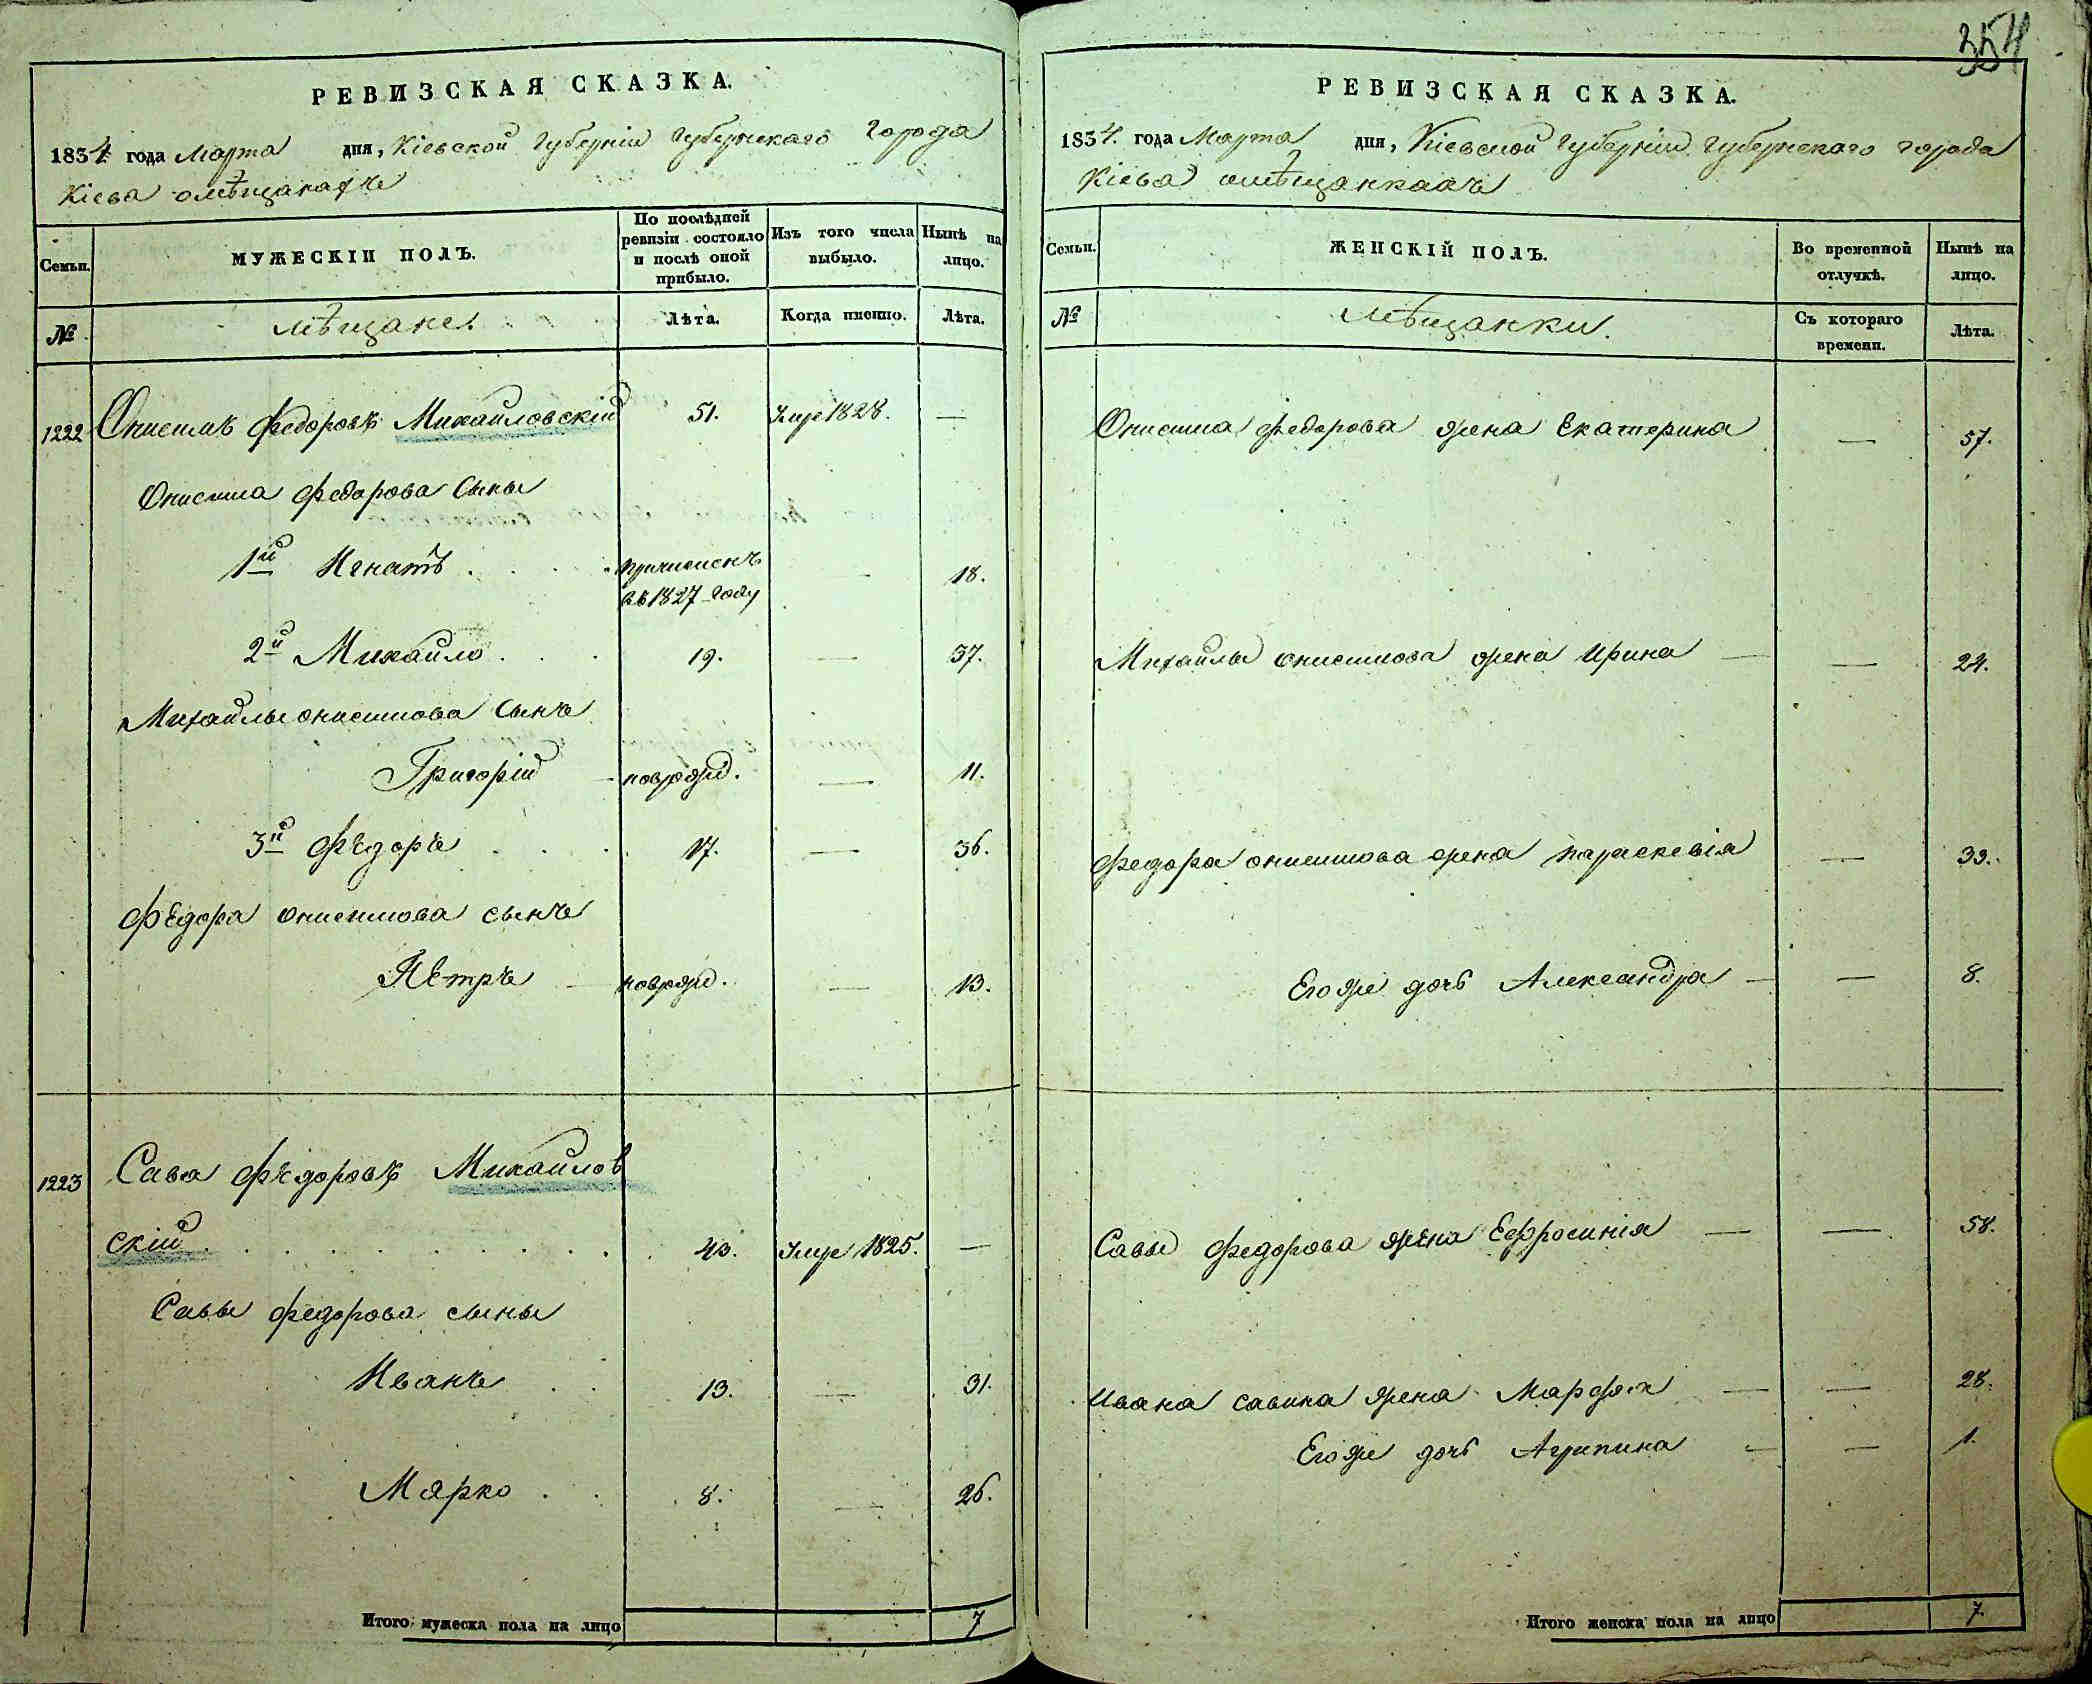 354
РЕВИЗСКАЯ СКАЗКА.
1834 года Марта дня, Кіевской Губерніи Губернскаго Города
Кіева омѣщанахъ
Семьи.
МУЖЕСКІЙ ПОЛЪ.
По послѣдней ревизіи состояло и послѣ оной прибыло.
Изъ того числа выбыло.
Нынѣ на лицо.
№
мѣщане.
Лѣта.
Когда именно.
Лѣта.
1222 Онисимъ Федоровъ Михайловскій 51. Умре 1828. —
Онисима Федорова Сыны
1й Игнатъ . . . причисленъ — 18.
въ 1827 году
2й Михайло . . . 19. — 37.
Михайлы онисимова Сынъ
Григорій — новрожд. — 11.
3й Фѣдоръ . . . 17. — 36.
Федора онисимова сынъ
Петръ — новрожд. — 13.
1223 Сава Фѣдоровъ Михайлов
скій . . . . . . . . . 43. Умре 1825. —
Савы Федорова сыны
Иванъ . . 13. — 31.
Марко . . 8. — 26.
Итого мужеска пола на лицо 7
РЕВИЗСКАЯ СКАЗКА.
1834. года Марта дня, Кіевской Губерніи Губернскаго города
Кіева омѣщанкахъ
Семьи.
ЖЕНСКІЙ ПОЛЪ.
Во временной отлучкѣ.
Нынѣ на лицо.
№
Мѣщанки.
Съ котораго времени.
Лѣта.
Онисима Федорова жена Екатерина — 57.
Михайлы онисимова жена Ирина — — 24.
Федора онисимова жена Параскевія — 33.
Егоже дочь Александра — — 8.
Савы Федорова жена Ефросинія — — 58.
Ивана савина жена Марфа — — 28.
Егоже дочь Агрипина — — 1.
Итого женска пола на лицо 7.